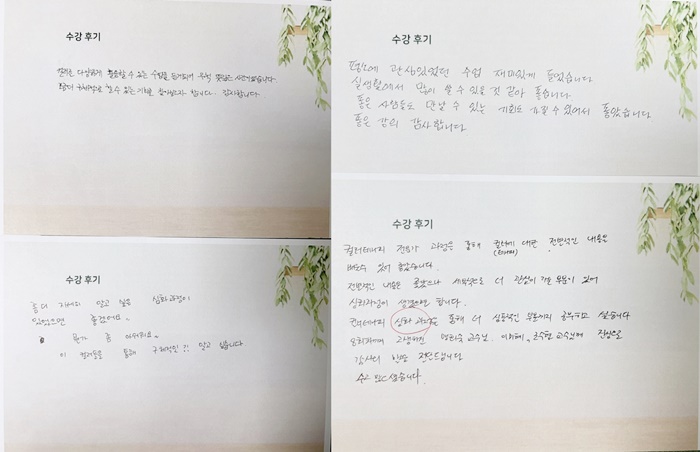 수강 후기
컬러를 다양하게 활용할 수 있는 수업을 듣게되어 무척 뜻깊은 시간이었습니다.
할 수 있는 합니다. 감사합니다.
수강 후기
평소에 관심있었던 수업 재미있게 들었습니다
실생활에서 많이 쓸 수 있을 것 같아 좋습니다
좋은 사람들도 만날 수 있는 기회도 가질 수 있어서 좋았습니다
좋은 강의 감사합니다
수강 후기
좀 더 알고 싶은 심화과정이
있었으면 좋겠어요.
뭔가 좀 아쉬워요.
이 컬러들을 통해 구체적인 알고 싶습니다
수강 후기
컬러테라피 전문가 과정을 통해 컬러에 대한 전반적인 내용을
배울수 있어 좋았습니다.
전반적인 내용은 좋았으나 세부적으로 더 관심이 가는 부분이 있어
심화과정이 생겼으면 합니다.
컬러테라피 심화 과정을 통해 더 심층적인 부분까지 공부하고 싶습니다
교수님, 교수님께 진심으로
감사의 전달드립니다
수고 많으셨습니다.